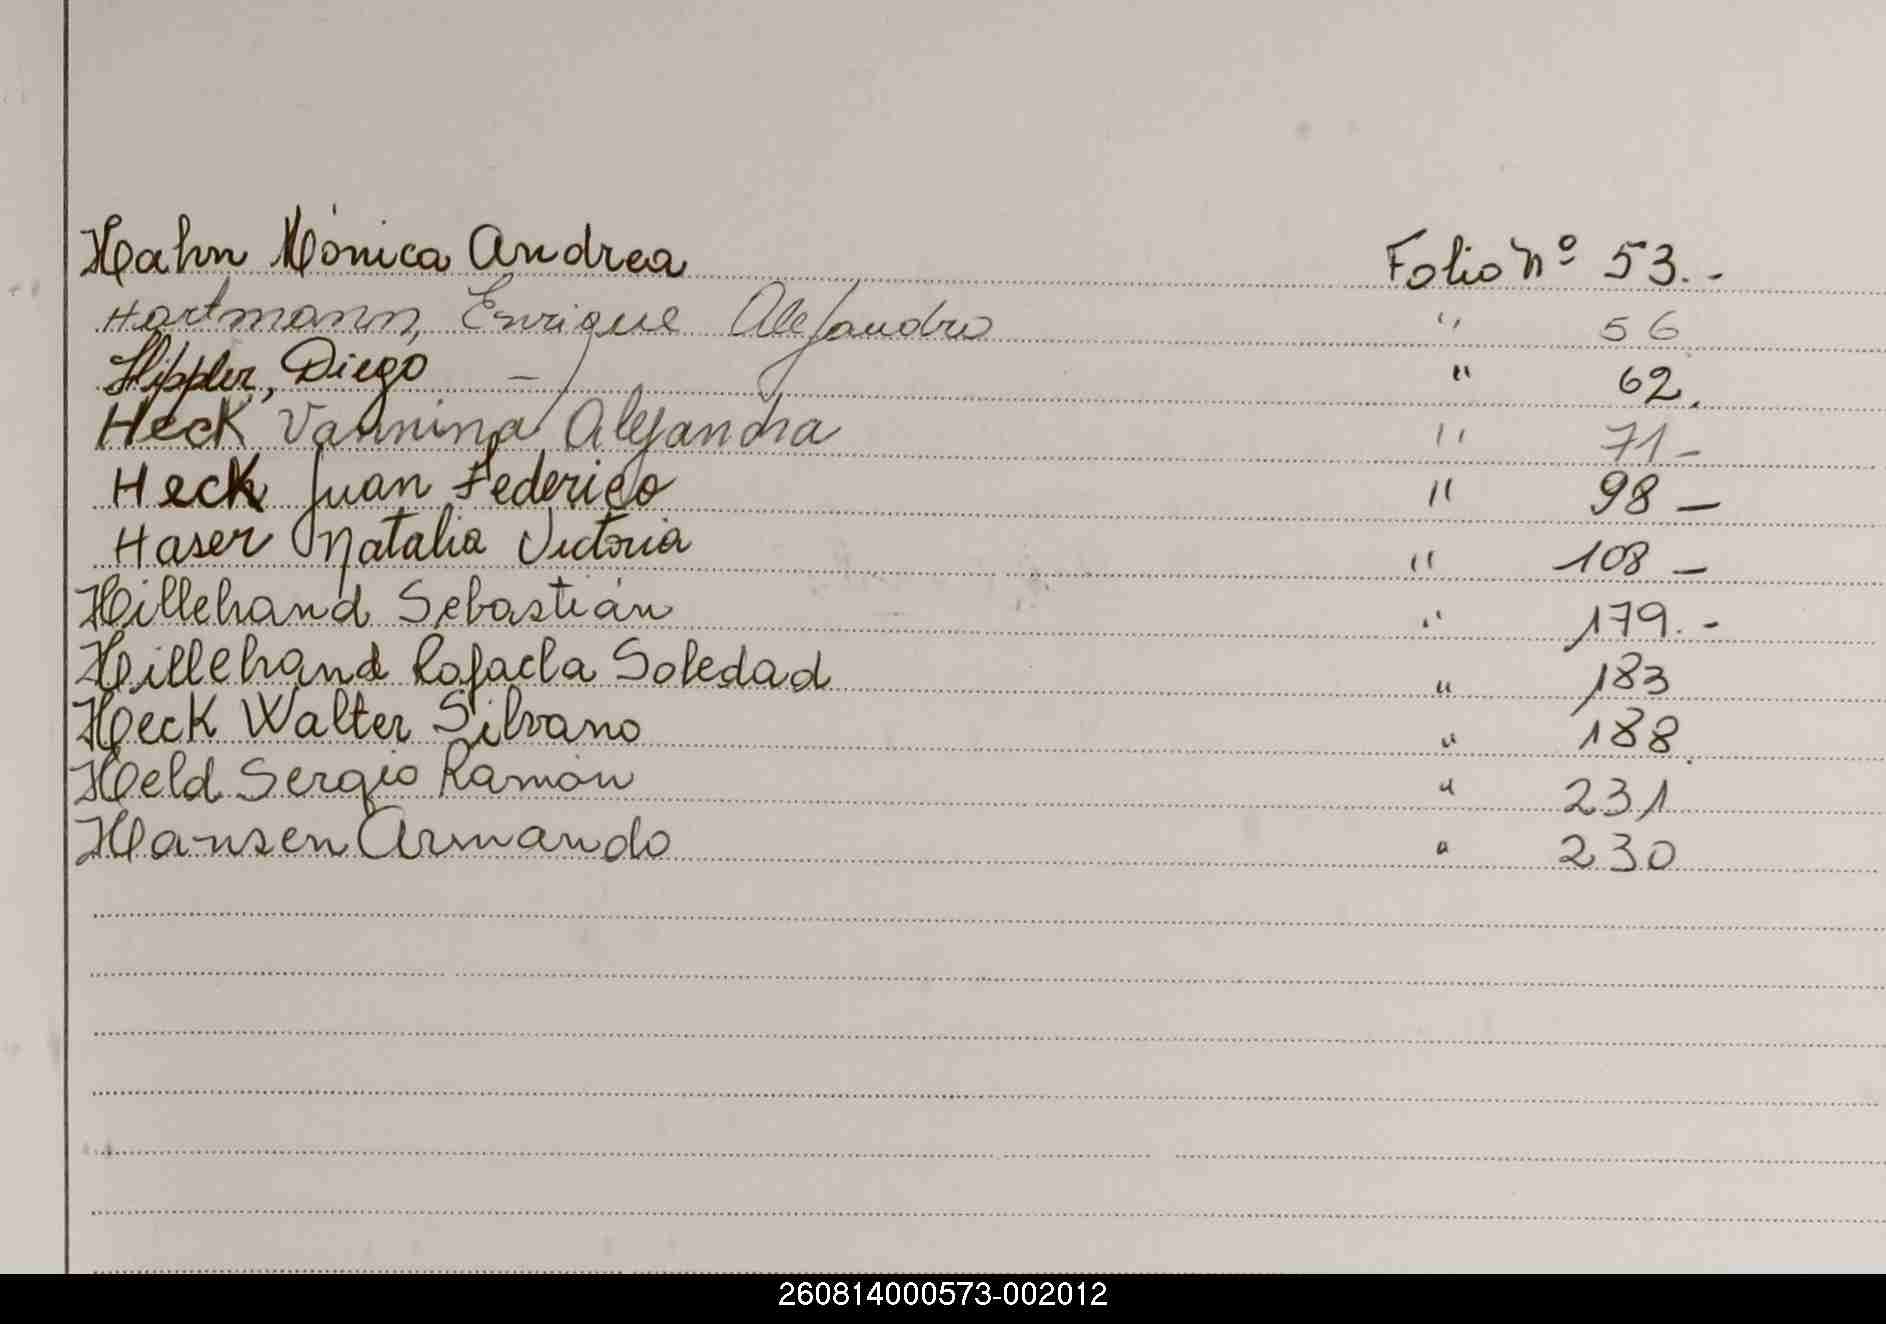 Hahn Mónica Andrea Folio Nº 53.-
Hartmann, Enrique Alejandro " 56
Hippler, Diego - " 62.
Heck Vannina Alejandra " 71-
Heck Juan Federico " 98-
Haser Natalia Victoria " 108-
Hillebrand Sebastián " 179.-
Hillebrand Rafaela Soledad " 183
Heck Walter Silvano " 188.
Held Sergio Ramón " 231
Hansen Armando " 230
260814000573-002012